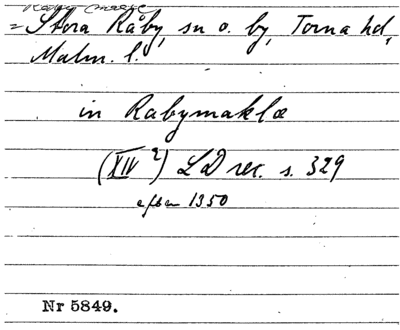 = Stora Råby, sn o. by, Torna hd,
Malm. l.
in Rabymaklæ
(XIV 2) LD rec. s. 329
efter 1350
Nr 5849.